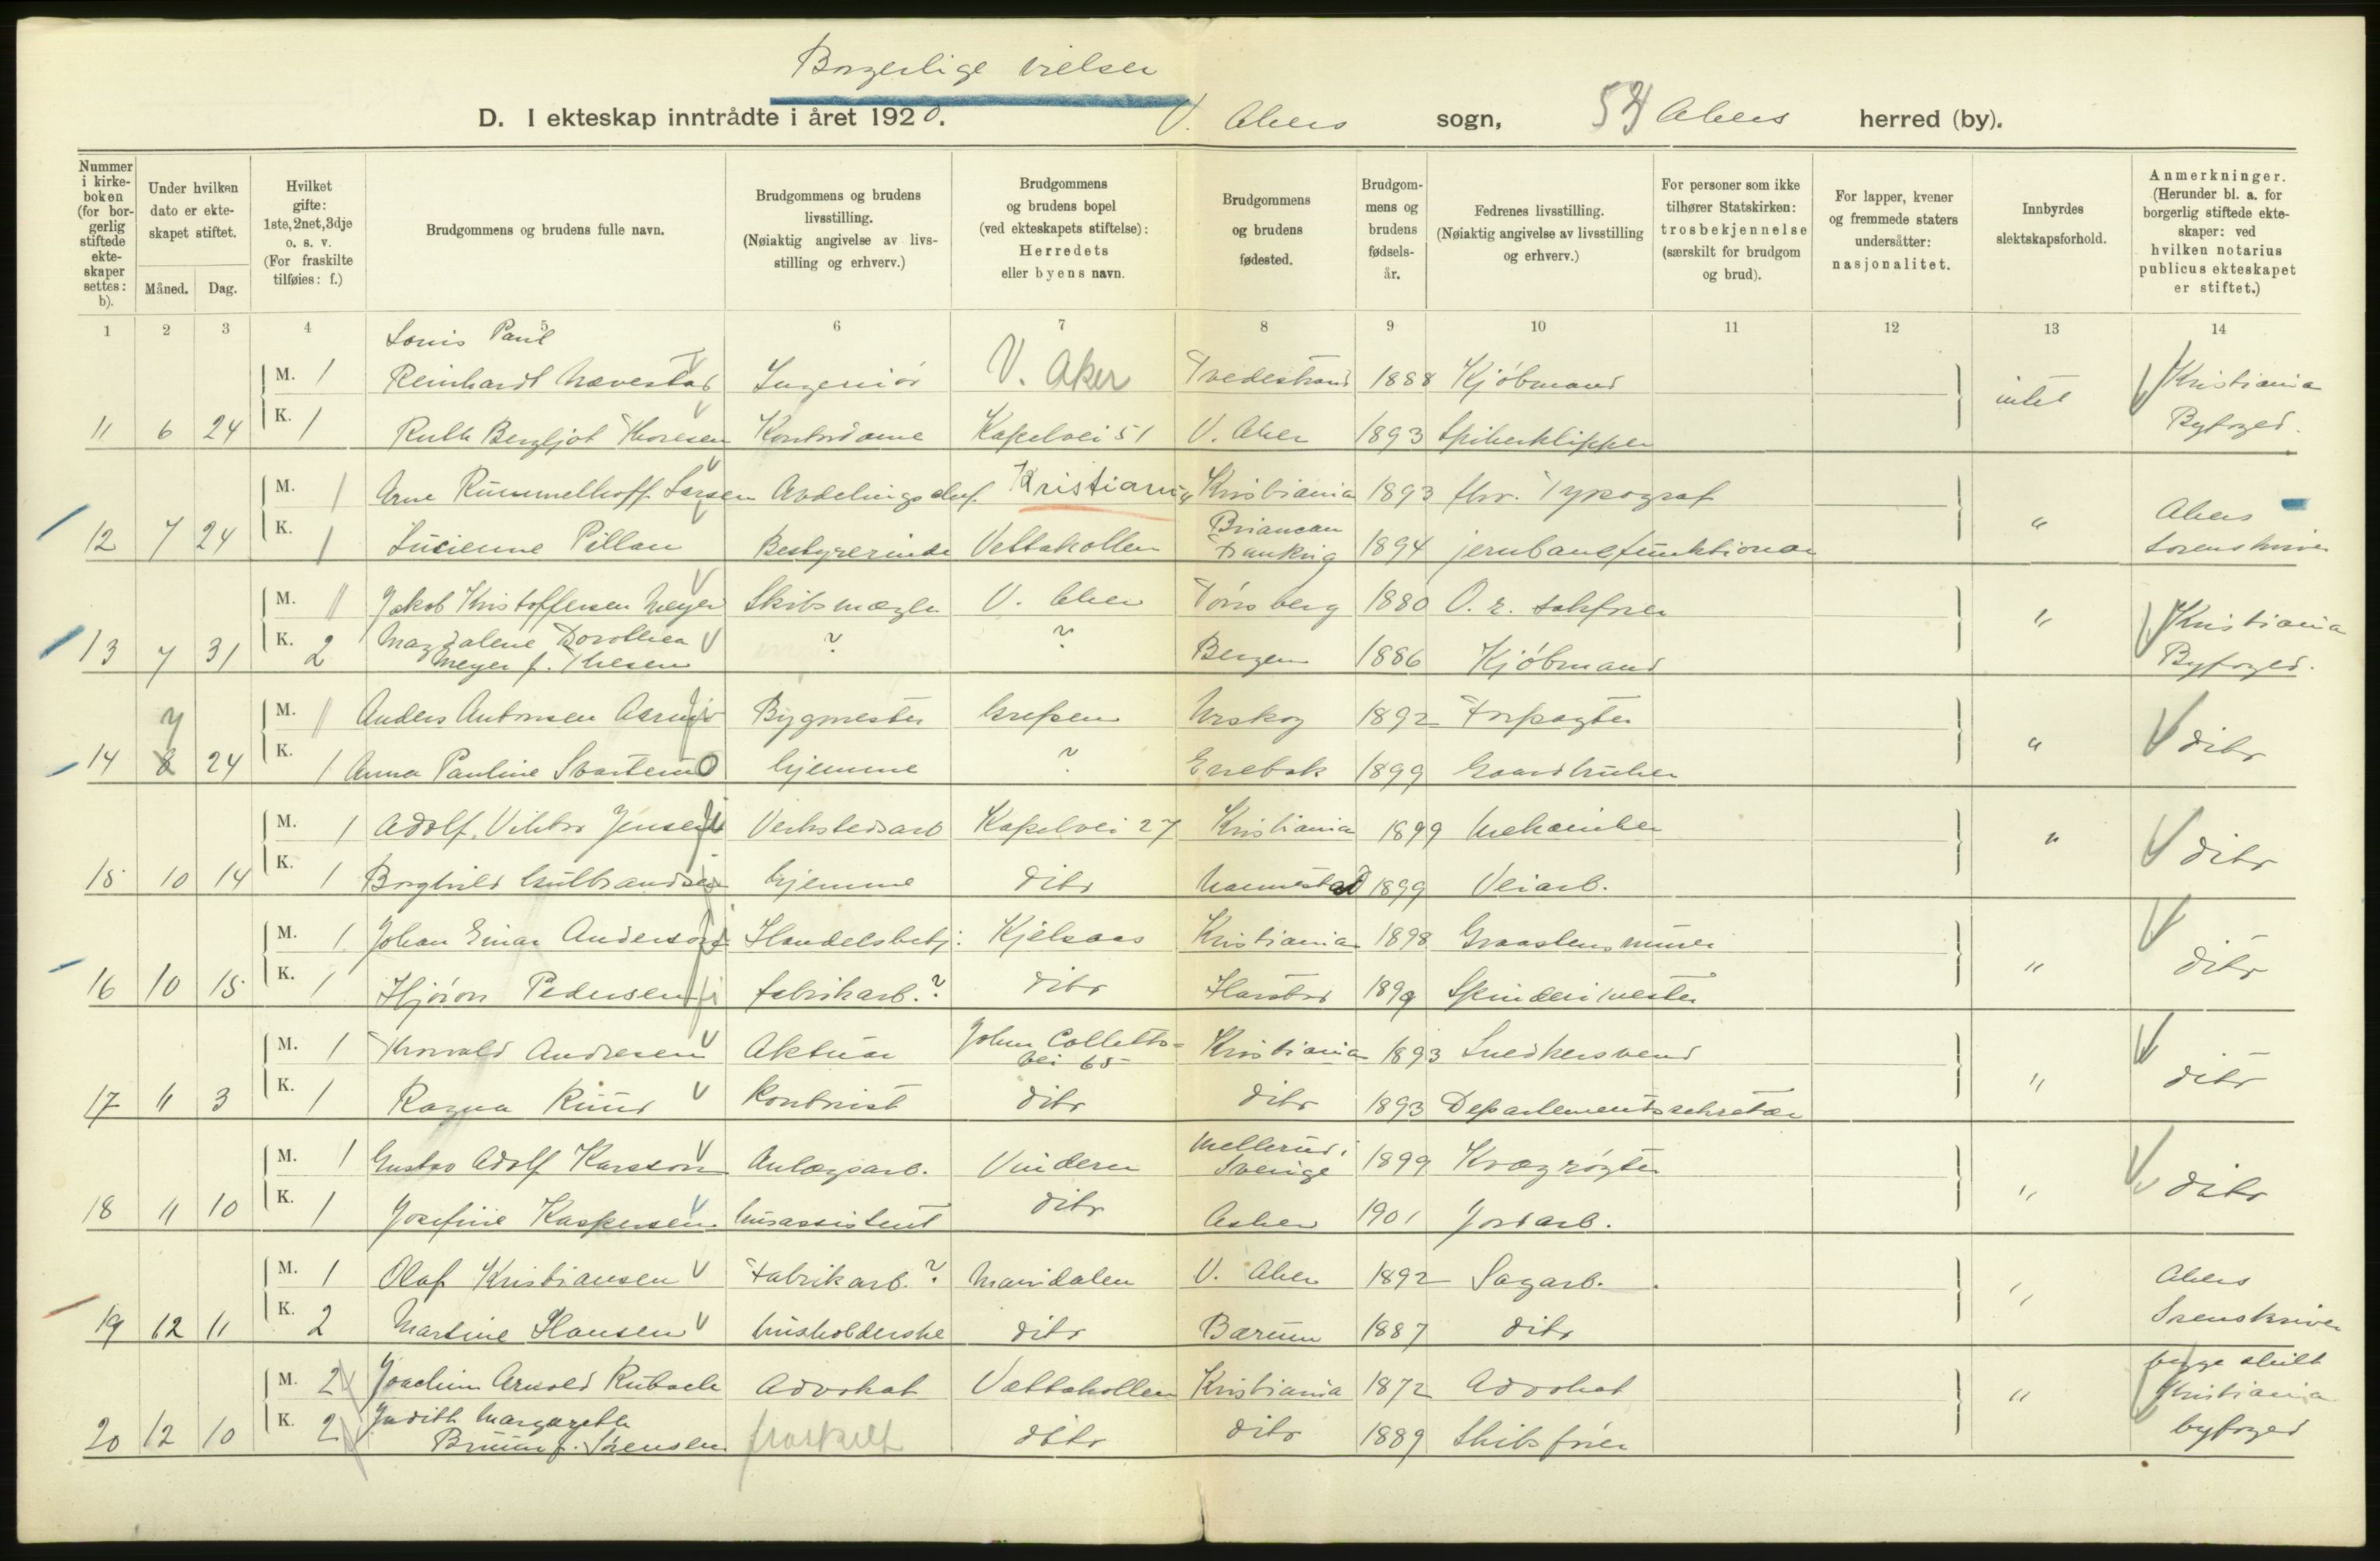 Borgerlige vielser
D. I ekteskap inntrådte i året 1920. V. Akers sogn, Akers herred (by).
Nummer i kirkeboken (for borgerlig stiftede ekteskaper settes: b).
Under hvilken dato er ekteskapet stiftet.
Måned. Dag.
Hvilket gifte: 1ste, 2net, 3dje o. s. v. (For fraskilte tilføies: f.)
Brudgommens og brudens fulle navn.
Brudgommens og brudens livsstilling. (Nøiaktig angivelse av livsstilling og erhverv.)
Brudgommens og brudens bopel (ved ekteskapets stiftelse): Herredets eller byens navn.
Brudgommens og brudens fødested.
Brudgommens og brudens fødselsår.
Fedrenes livsstilling. (Nøiaktig angivelse av livsstilling og erhverv.)
For personer som ikke tilhører Statskirken: trosbekjennelse (særskilt for brudgom og brud).
For lapper, kvener og fremmede staters undersåtter: nasjonalitet.
Innbyrdes slektskapsforhold.
Anmerkninger. (Herunder bl. a. for borgerlig stiftede ekteskaper: ved hvilken notarius publicus ekteskapet er stiftet.)
1 2 3 4 5 6 7 8 9 10 11 12 13 14
Louis Paul
M. 1 Reinhardt Nævestad Ingeniør V. Aker Tvedestrand 1888 Kjøbmand intet Kristiania
11 6 24 K. 1 Ruth Bergljot Thoresen Kontordame Kapelvei 51 V. Aker 1893 Spikerklipper Byfoged.
M. 1 Arne Rummelhoff Larsen Avdelingschef Kristiania Kristiania 1893 fhv. Typograf " Akers
12 7 24 K. 1 Lucienne Pillan Bestyrerinde Vettakollen Briancan Frankrig 1894 jernbanefunktionær Sorenskriver
M. 1 Jakob Kristoffersen Meyer Skibsmægler V. Aker Tønsberg 1880 O. r. sakfører " Kristiania
13 7 31 K. 2 Magdalene Dorothea Meyer f. Thesen ? ? Bergen 1886 Kjøbmand Byfoged.
7
M. 1 Anders Antonsen Bygmester Grefsen Urskog 1892 Forpagter " ditto
14 8 24 K. 1 Anna Pauline Svartemo hjemme ? Enebak 1899 Gaardbruker
M. 1 Adolf Viktor Jensen Verkstedsarb Kapelvei 27 Kristiania 1899 Mekaniker " ditto
15 10 14 K. 1 Borghild Gulbrandsen hjemme ditto Nannestad 1899 Veiarb.
M. 1 Johan Einar Anderson Handelsbetj. Kjelsaas Kristiania 1898 Graastensmurer " ditto
16 10 15 K. 1 Hjørdis Pedersen fabrikarb. ? ditto Harstad 1899 Spinderimester
M. 1 Thorvald Andresen Aktuar Johan Colletts vei 65 Kristiania 1893 Snedkersvend " ditto
17 11 3 K. 1 Ragna Ruud Kontorist ditto ditto 1893 Departementssekretær
M. 1 Gustav Adolf Karsson Anlægsarb. Vinderen Mellerud i Sverige 1899 Kvægrøgter " ditto
18 11 10 K. 1 Josefine Kaspersen husassistent ditto Asker 1901 Jordarb.
M. 1 Olaf Kristiansen Fabrikarb. ? Maridalen V. Aker 1892 Sagarb. " Akers
19 12 11 K. 2 Martine Hansen husholderske ditto Bærum 1887 ditto Sorenskriver
M. 2 Joachim Arnold Rubach Advokat Vettakollen Kristiania 1872 Advokat " begge skilt Kristiania
20 12 10 K. 2 Judith Margarethe Bruun f. Sørensen fraskilt ditto ditto 1889 Skibsfører byfoged